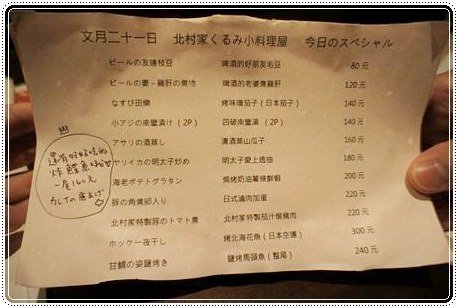 文月二十一日 北村家くるみ小料理屋 今日のスペシャル
ビールの友達枝豆 啤酒的好朋友毛豆 80元
ビールの妻-雞肝の煮物 啤酒的老婆煮雞肝 120元
なすび田樂 烤味噌茄子(日本茄子) 140元
小アジの南蠻漬け(2P) 四破南蠻漬(2P) 140元
アサリの酒蒸し 清酒蒸山瓜子 160元
ヤリイカの明太子炒め 明太子愛上透抽 180元
海老ポテトグラタン 焗烤奶油薯條鮮蝦 200元
豚の角煮卵入り 日式滷肉加蛋 220元
北村家特製豚のトマト煮 北村家特製茄汁燉豬肉 220元
ホッケ一夜干し 烤北海花魚(日本空運) 300元
甘鯛の姿鹽烤き 鹽烤馬頭魚(整尾) 240元
還有好好吃的
炸鮮魚